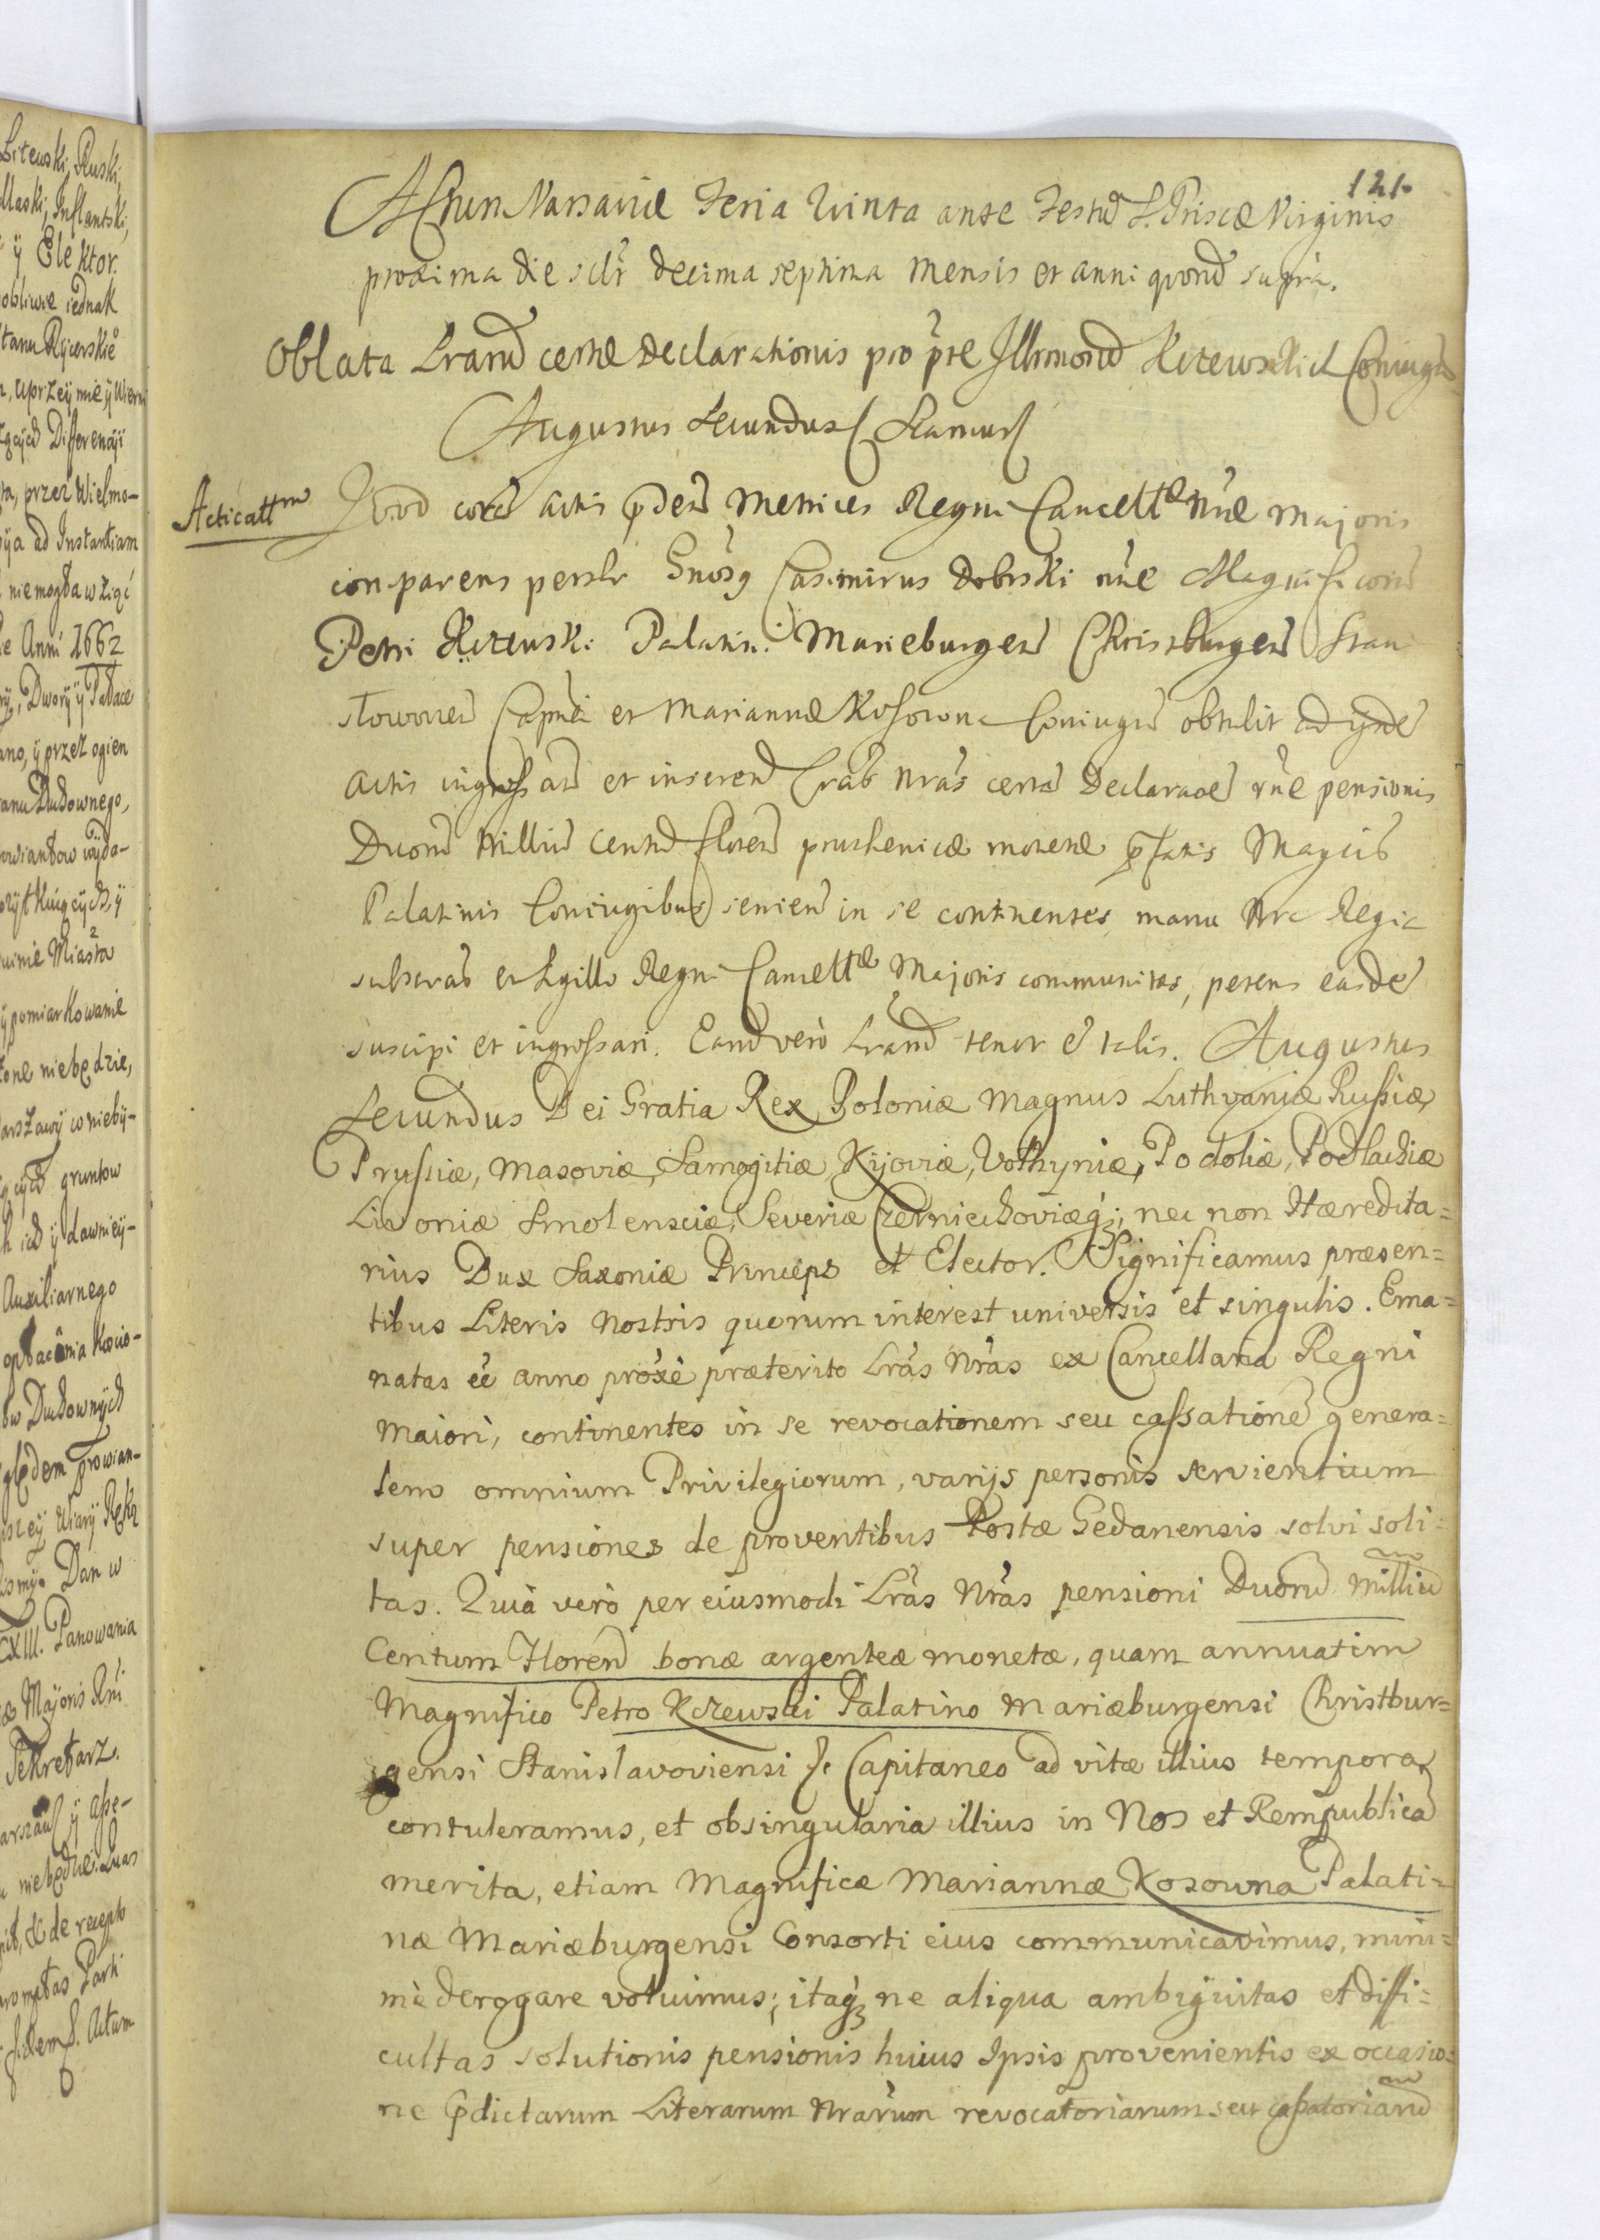 Litewski, Ruski,
dlaski, Inflantski,
ÿ Elektor.
obliwie iednak
stanu Rÿcerskie
, uprzeÿmie ÿ Wierni
Differencÿi
ta, przez Wielmo-
ÿa ad Instantiam
niemogła wziąć
Anni 1662
, Dworÿ ÿ Pałace
ano, ÿ przez ogien
anu Duchownego,
wÿda-
winie Miasta
ÿ pomiarkowanie
one niebędzie,
arszawÿ w niebÿ-
gruntow
ich ÿ dawnieÿ-
Auxiliarnego
Koscio-
ow Duchownÿch
ględem prowian-
Wiarÿ Ręką
ismÿ. Dan w
CXIII. Panowania
Majoris Rni
Sekretarz.
arszaw ÿ asse-
niebędzie. Quas
, et de recepto
fidem. Actum
121.
Actum Varsaviæ Feria Quinta ante Festu S. Priscæ Virginis
proxima die sclt decima septima mensis et anni quoru supra.
Oblata Lraru certæ Declarationis pro pte Illrmoru Kczewskich Coniugu
Augustus Secundus Samus
Acticattm Quod cora actis pden Metrices Regni Cancellæ nræ majoris
comparens persr Gnosq Casimirus Dobrski nne Magnificoru
Petri Kczewski Palatini Marieburgen Christburgen Stani
slavovien Capnei et Mariannæ Kosowna Coniugu obtulit ad ijsde
actis ingrossan et inseren Lras nras certa Declaraoe rne pensionis
Duoru Milliu Centu floren prussenicæ monetæ pfatis Magcis
Palatinis Coniugibus servien in se continentes, manu Nra Regia
subscras et Sigillo Regni Cancellæ Majoris communitas, petens easde
suscipi et ingrossari. Earu verò Lraru tenor e talis. Augustus
Secundus Dei Gratia Rex Poloniæ Magnus Luthvaniæ Russiæ
Prussiæ, Masoviæ, Samogitiæ Kijoviæ, Volhyniæ, Podoliæ, Podlachiæ
Livoniæ Smolensciæ, Severiæ Czerniechoviæq; nec non Hæredita=
rius Dux Saxoniæ Princeps et Elector. Significamus præsen=
tibus Literis Nostris quorum interest universis et singulis. Ema=
natas eè anno proxè præterito Lras Nras ex Cancellaria Regni
Maiori, continentes in se revocationem seu cassatione genera=
lem omnium Privilegiorum, varijs personis servientium
super pensiones de proventibus Postæ Gedanensis solvi soli=
tas. Quià verò per eiusmodi Lras Nras pensioni Duoru Milliu
Centum Floren bonæ argenteæ monetæ, quam annuatim
Magnifico Petro Kczewski Palatino Mariæburgensi Christbur=
gensi Stanislavoviensi &c Capitaneo ad vitæ illius tempora
contuleramus, et obsingularia illius in Nos et Rempublica
merita, etiam Magnificæ Mariannæ Kosowna Palati=
næ Mariæburgensi Consorti eius communicavimus, mini=
mè derogare voluimus; itaq ne aliqua ambiguitas et diffi=
cultas solutionis pensionis huius Ipsis provenientis ex occasio=
ne pdictarum Literarum Nrarum revocatoriarum seu cassatoriaru